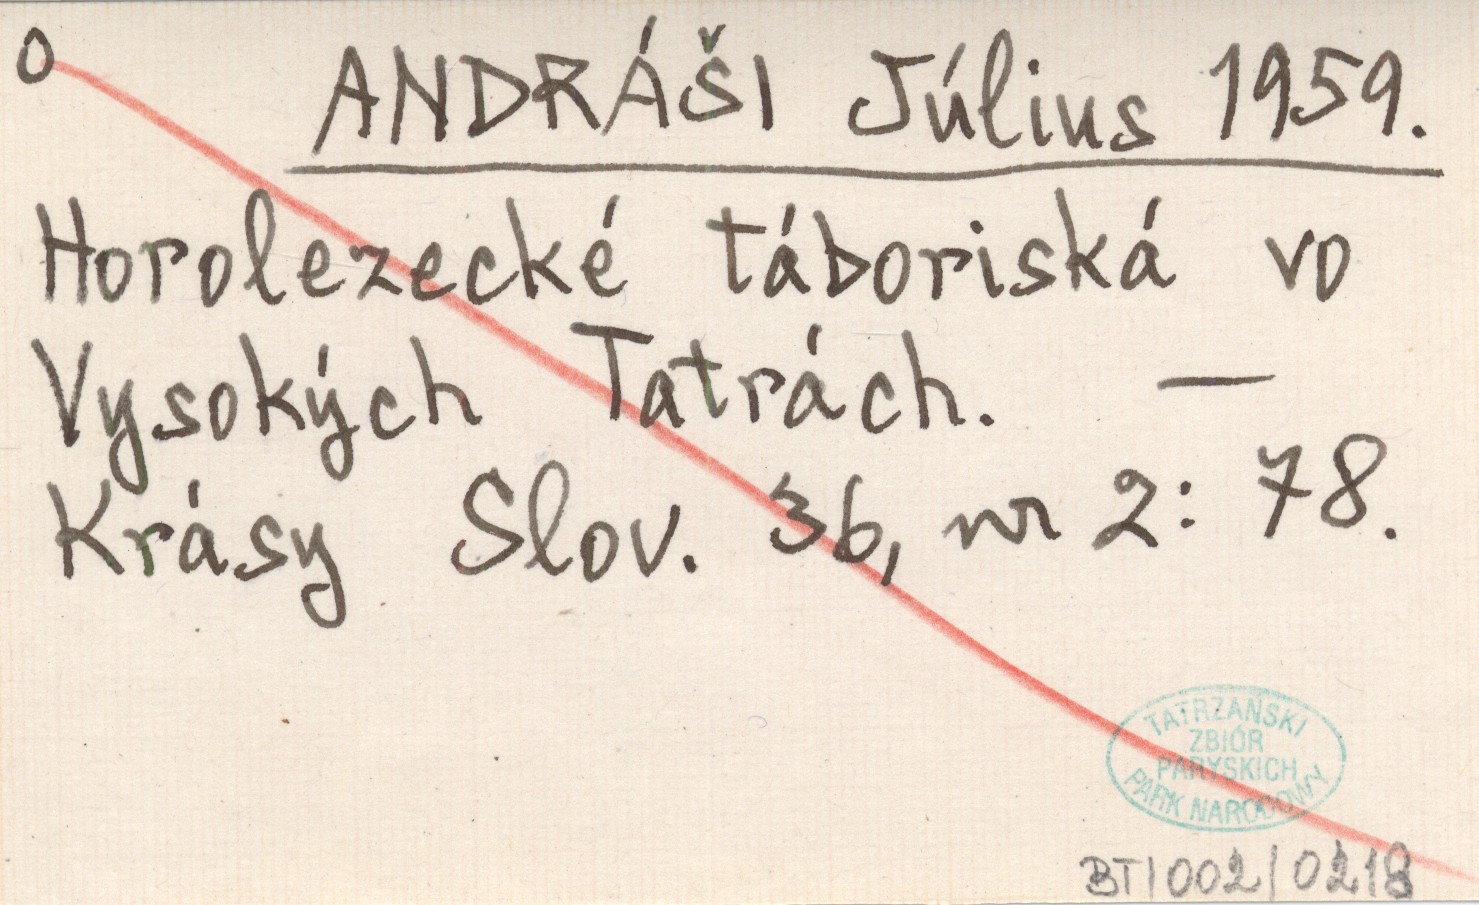 O
ANDRÁŠI Július 1959.
Horolezecké táboriská vo
Vysokých Tatrách. —
Krásy Slov. 36, nr 2: 78.
TATRZAŃSKI
ZBIÓR
PARYSKICH
PARK NARODOWY
BT/002/0218